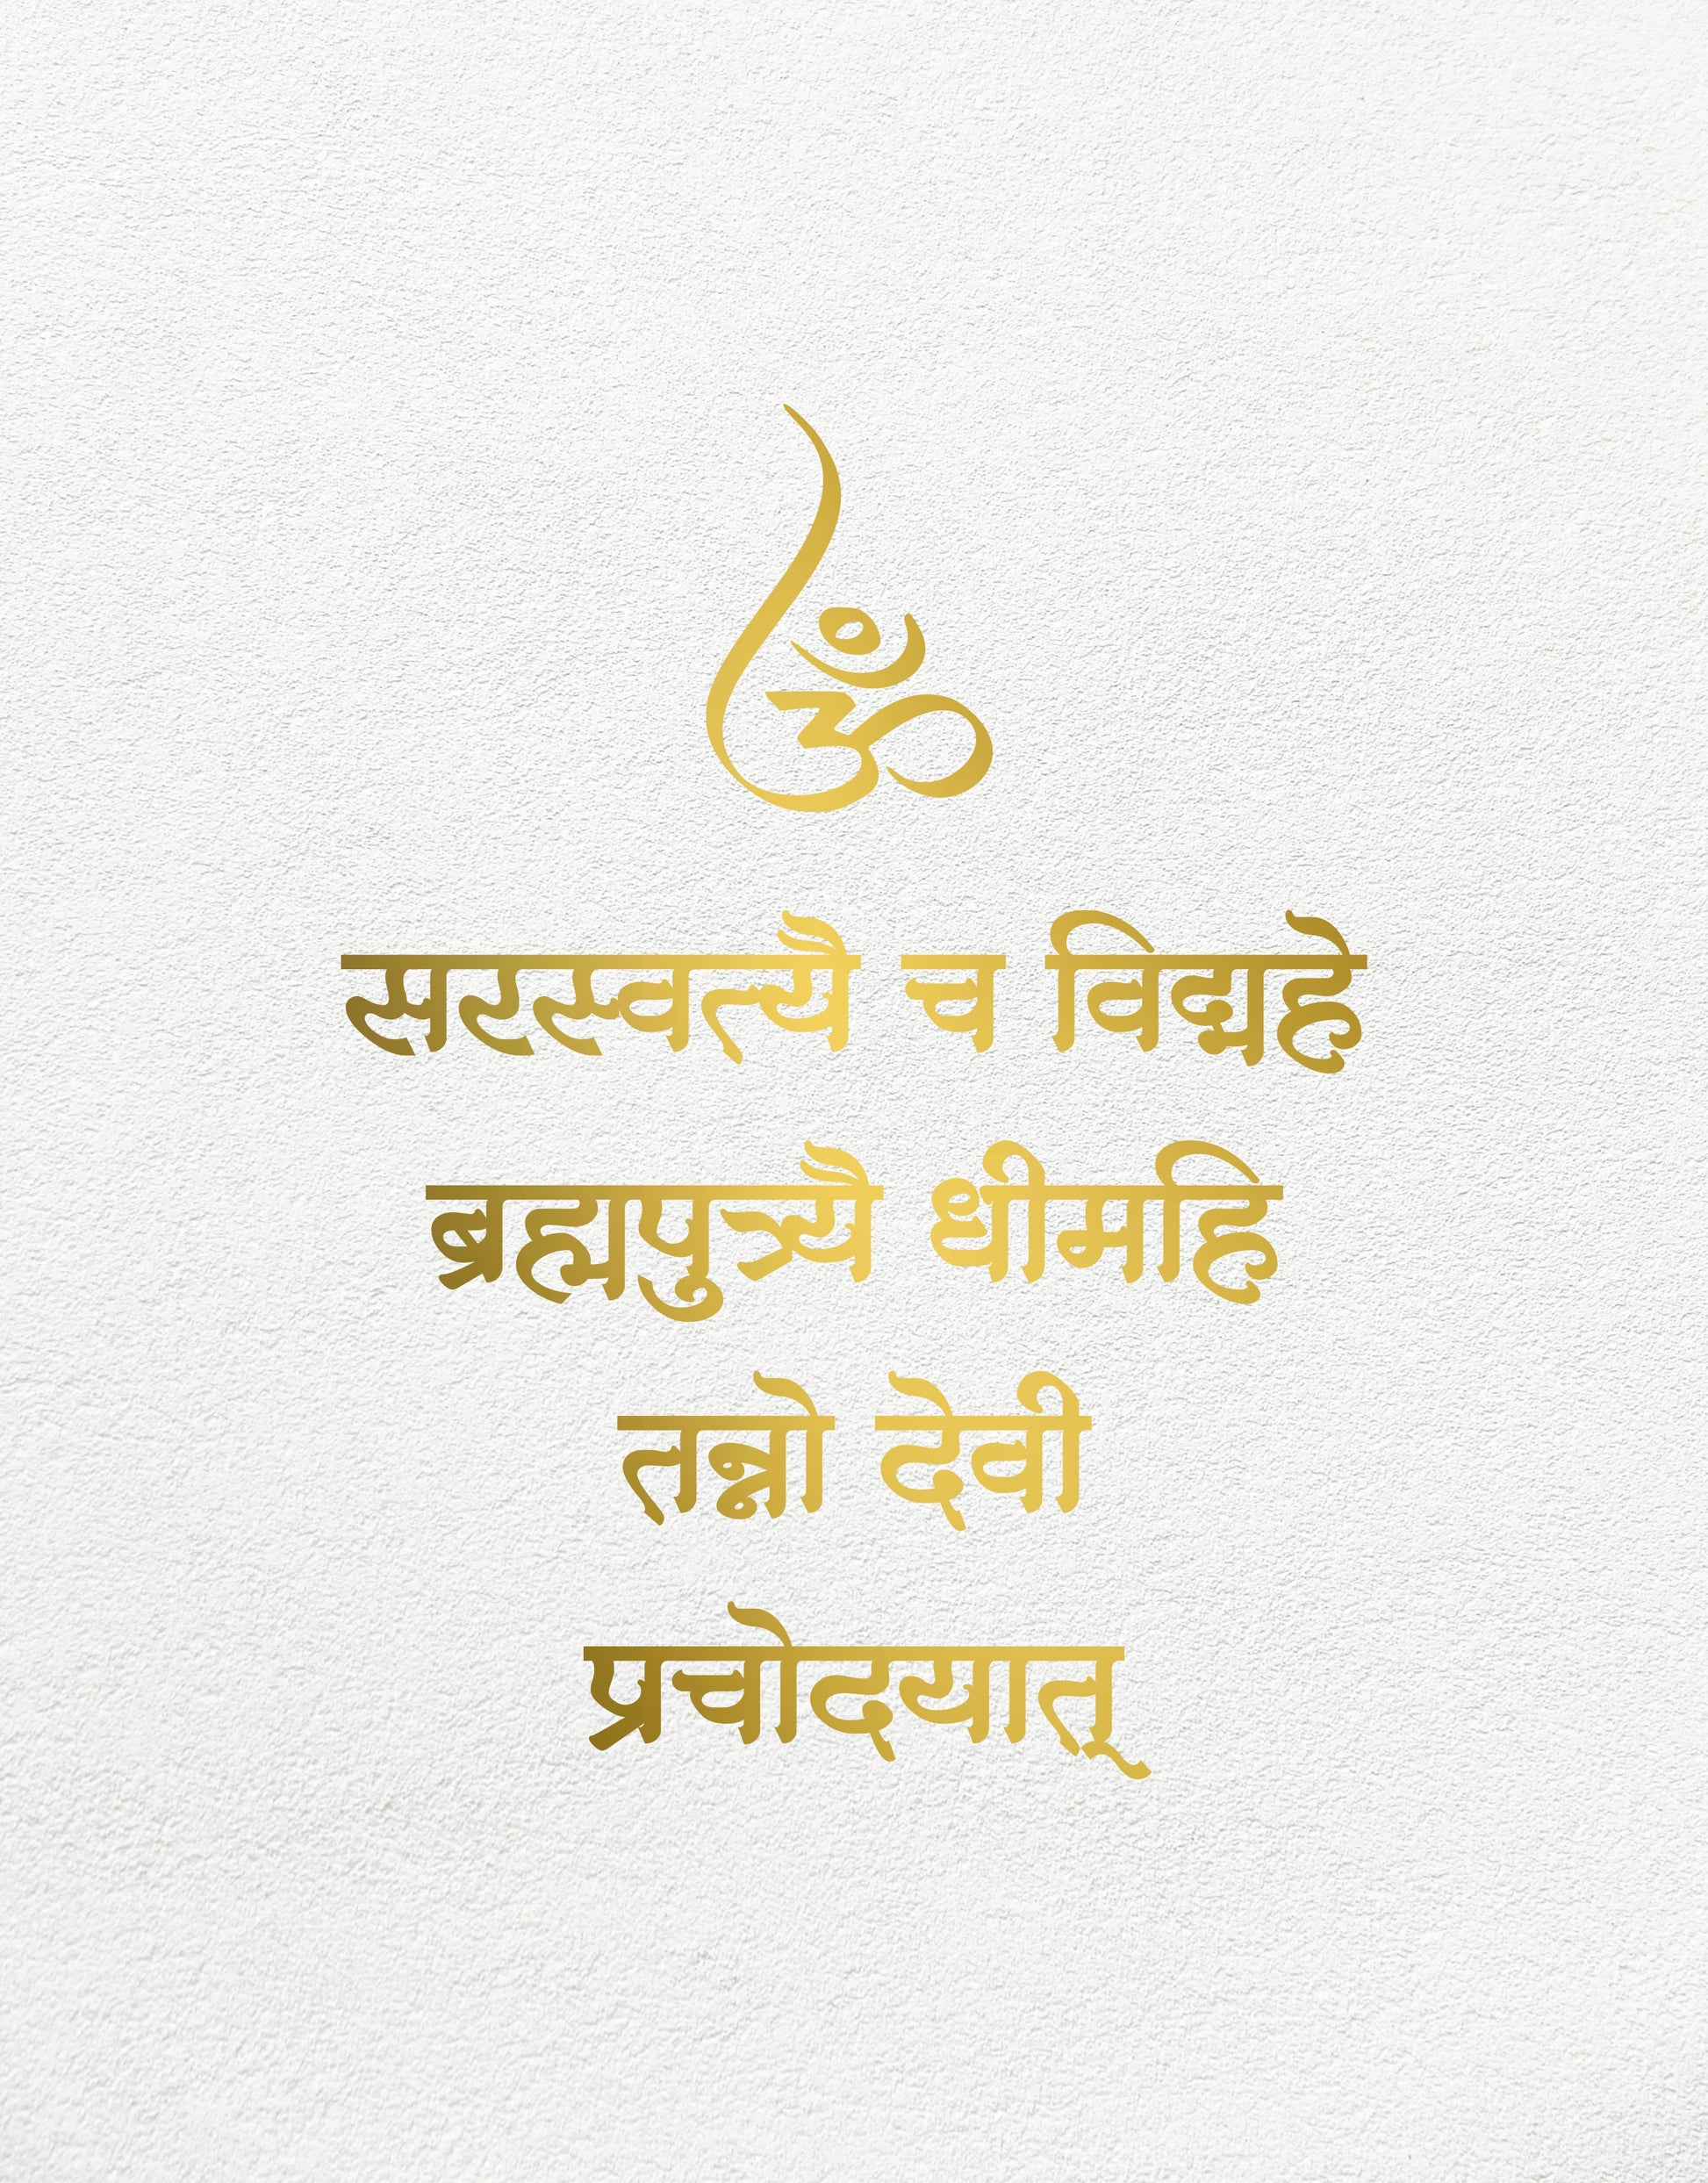 ॐ
सरस्वत्यै च विद्महे
ब्रह्मपुत्र्यै धीमहि
तन्नो देवी
प्रचोदयात्